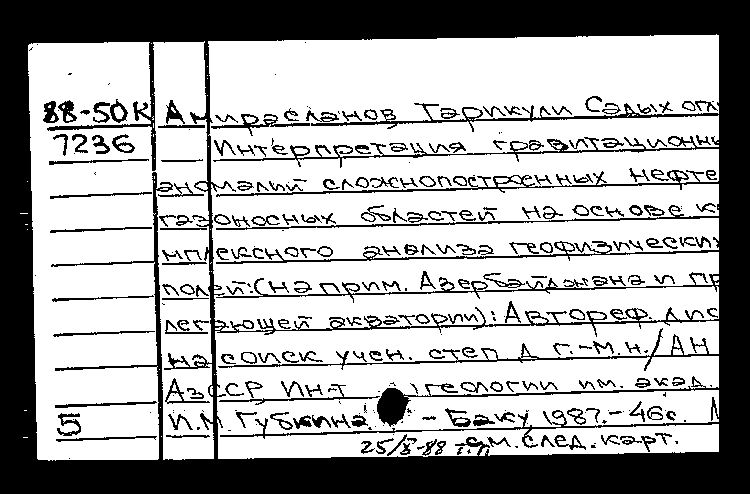 88-50К Амирасланов Тарикули Садых огл
7236 Интерпретация гравитационны
аномалий сложнопостроенных нефте
газоносных областей на основе ко
мплексного анализа геофизических
полей:(на прим. Азербайджана и пр
легающей акватории): Автореф. дис
на соиск учен. степ д г.-м.н./АН
АзССР Ин-т геологии им. акад.
5 И.М. Губкина - Баку, 1987.- 46с.
25/X-88 см. след. карт.